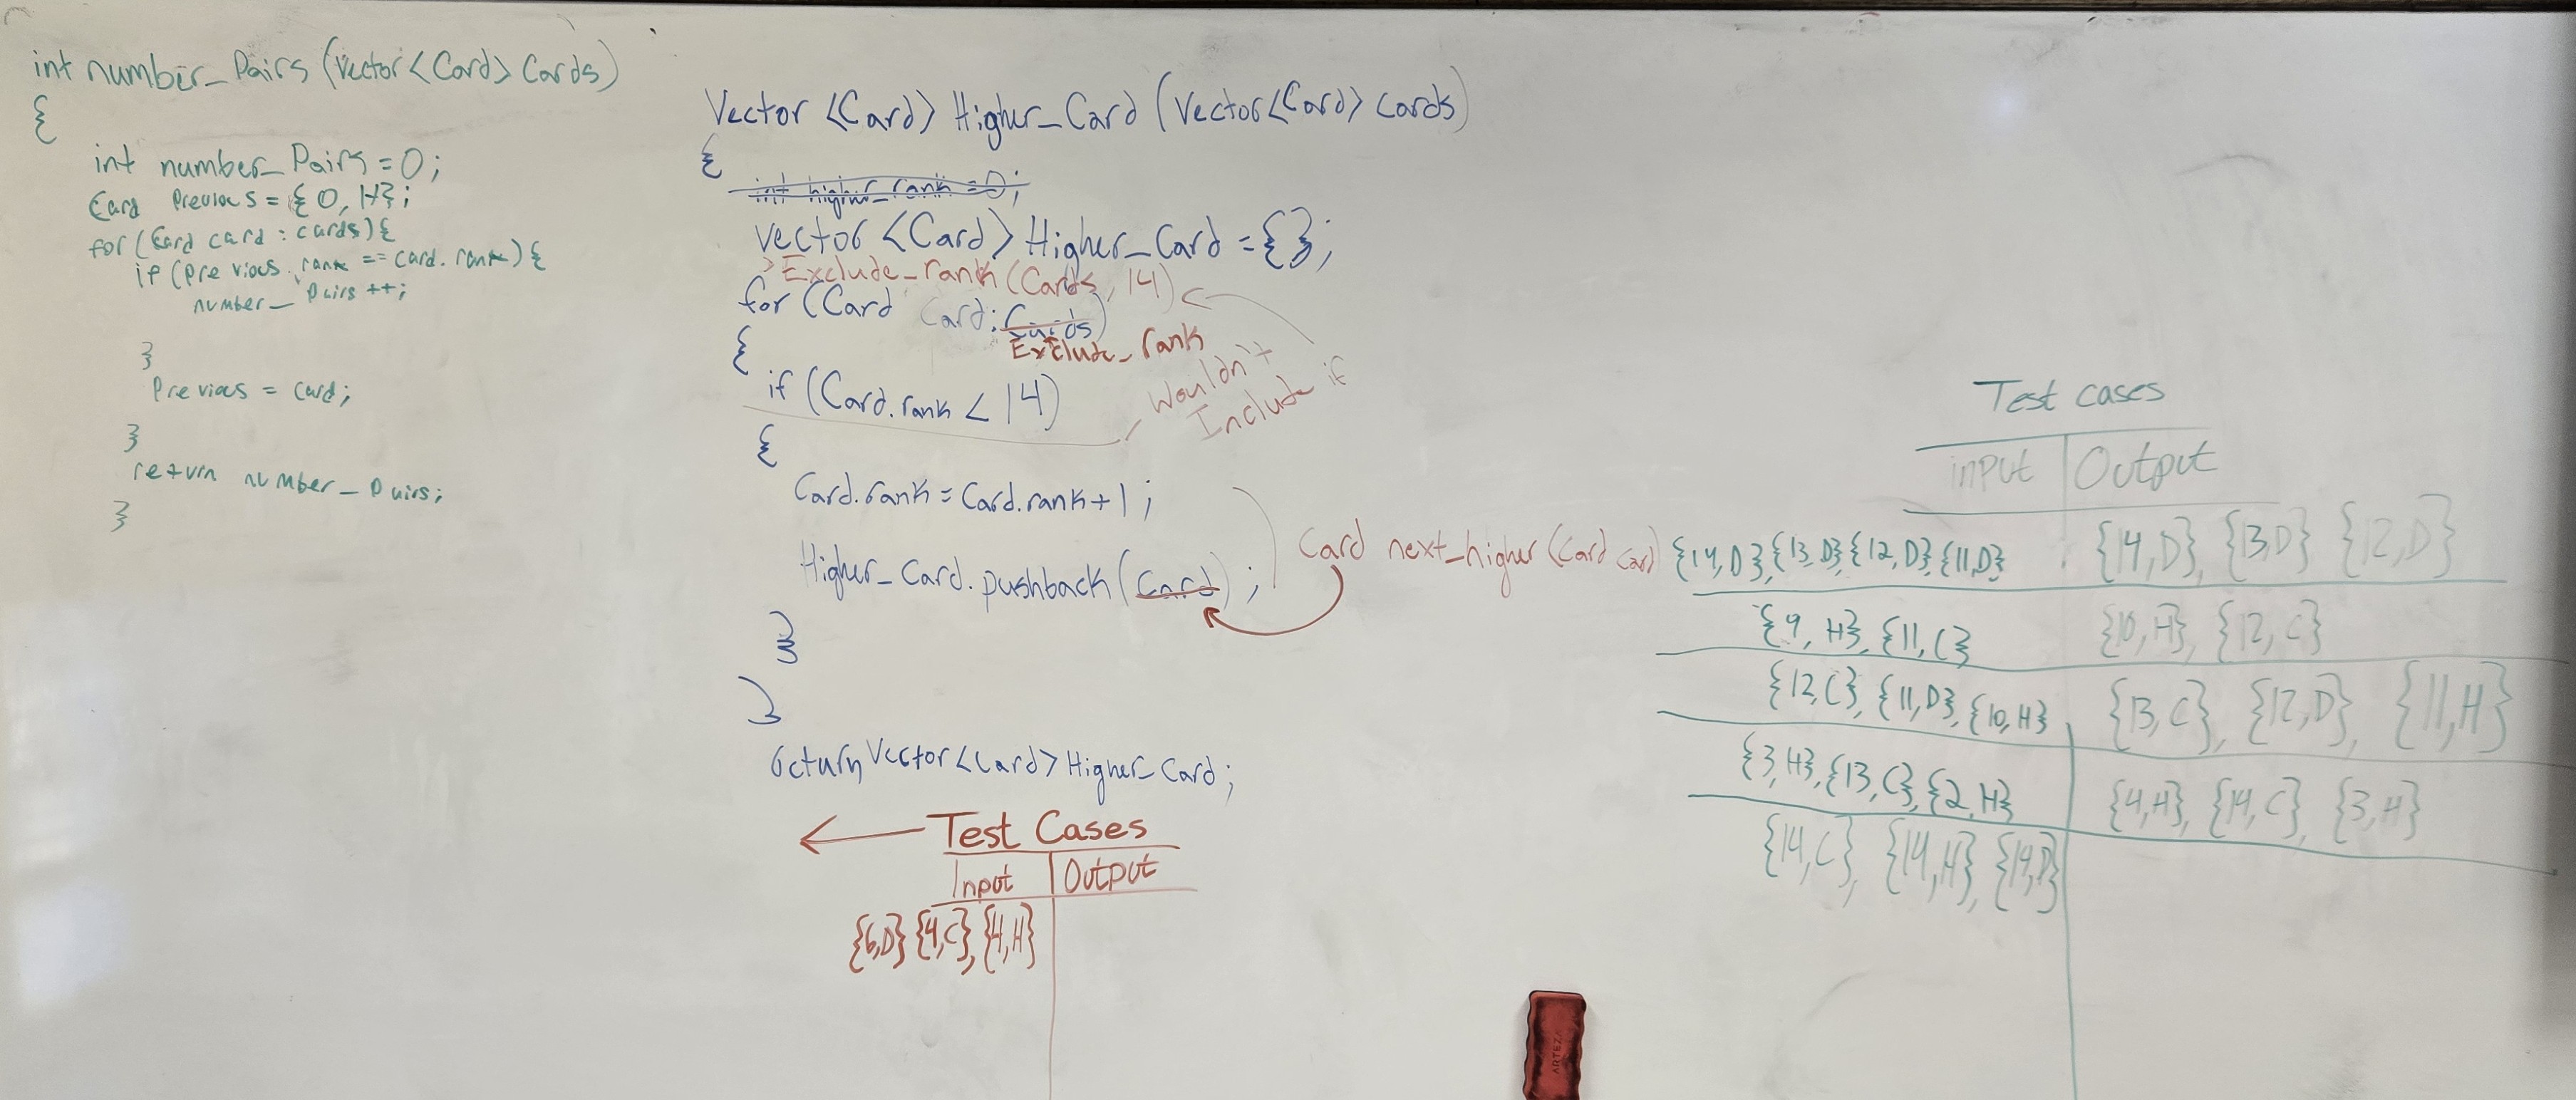 int number_Pairs (Vector<Card> Cards)
{
int number_Pairs = 0;
Card Previous = {0, H};
for (Card card : cards) {
if (previous.rank == card.rank) {
number_pairs ++;
}
Previous = card;
}
return number_pairs;
}
Vector <Card> Higher_Card (Vector<Card> cards)
{
int higher_rank = 0;
vector <Card> Higher_Card = {};
> Exclude_rank (Cards, 14)
for (Card Card: Cards)
Exclude_rank
{
if (Card.rank < 14)
Wouldn't
Include if
{
Card.rank = Card.rank + 1 ;
Card next_higher (Card card)
Higher_Card.pushback (Card) ;
}
}
return Vector<Card> Higher_Card ;
Test Cases
Input | Output
{6,D} {4,C}, {4,H}
Test cases
input | Output
{14, D}, {13, D}, {12, D}, {11, D} {14, D}, {13, D} {12, D}
{9, H}, {11, C} {10, H}, {12, C}
{12, C}, {11, D}, {10, H} {13, C}, {12, D}, {11, H}
{3, H}, {13, C}, {2, H} {4, H}, {14, C}, {3, H}
{14, C}, {14, H}, {14, D}
ARTEZA